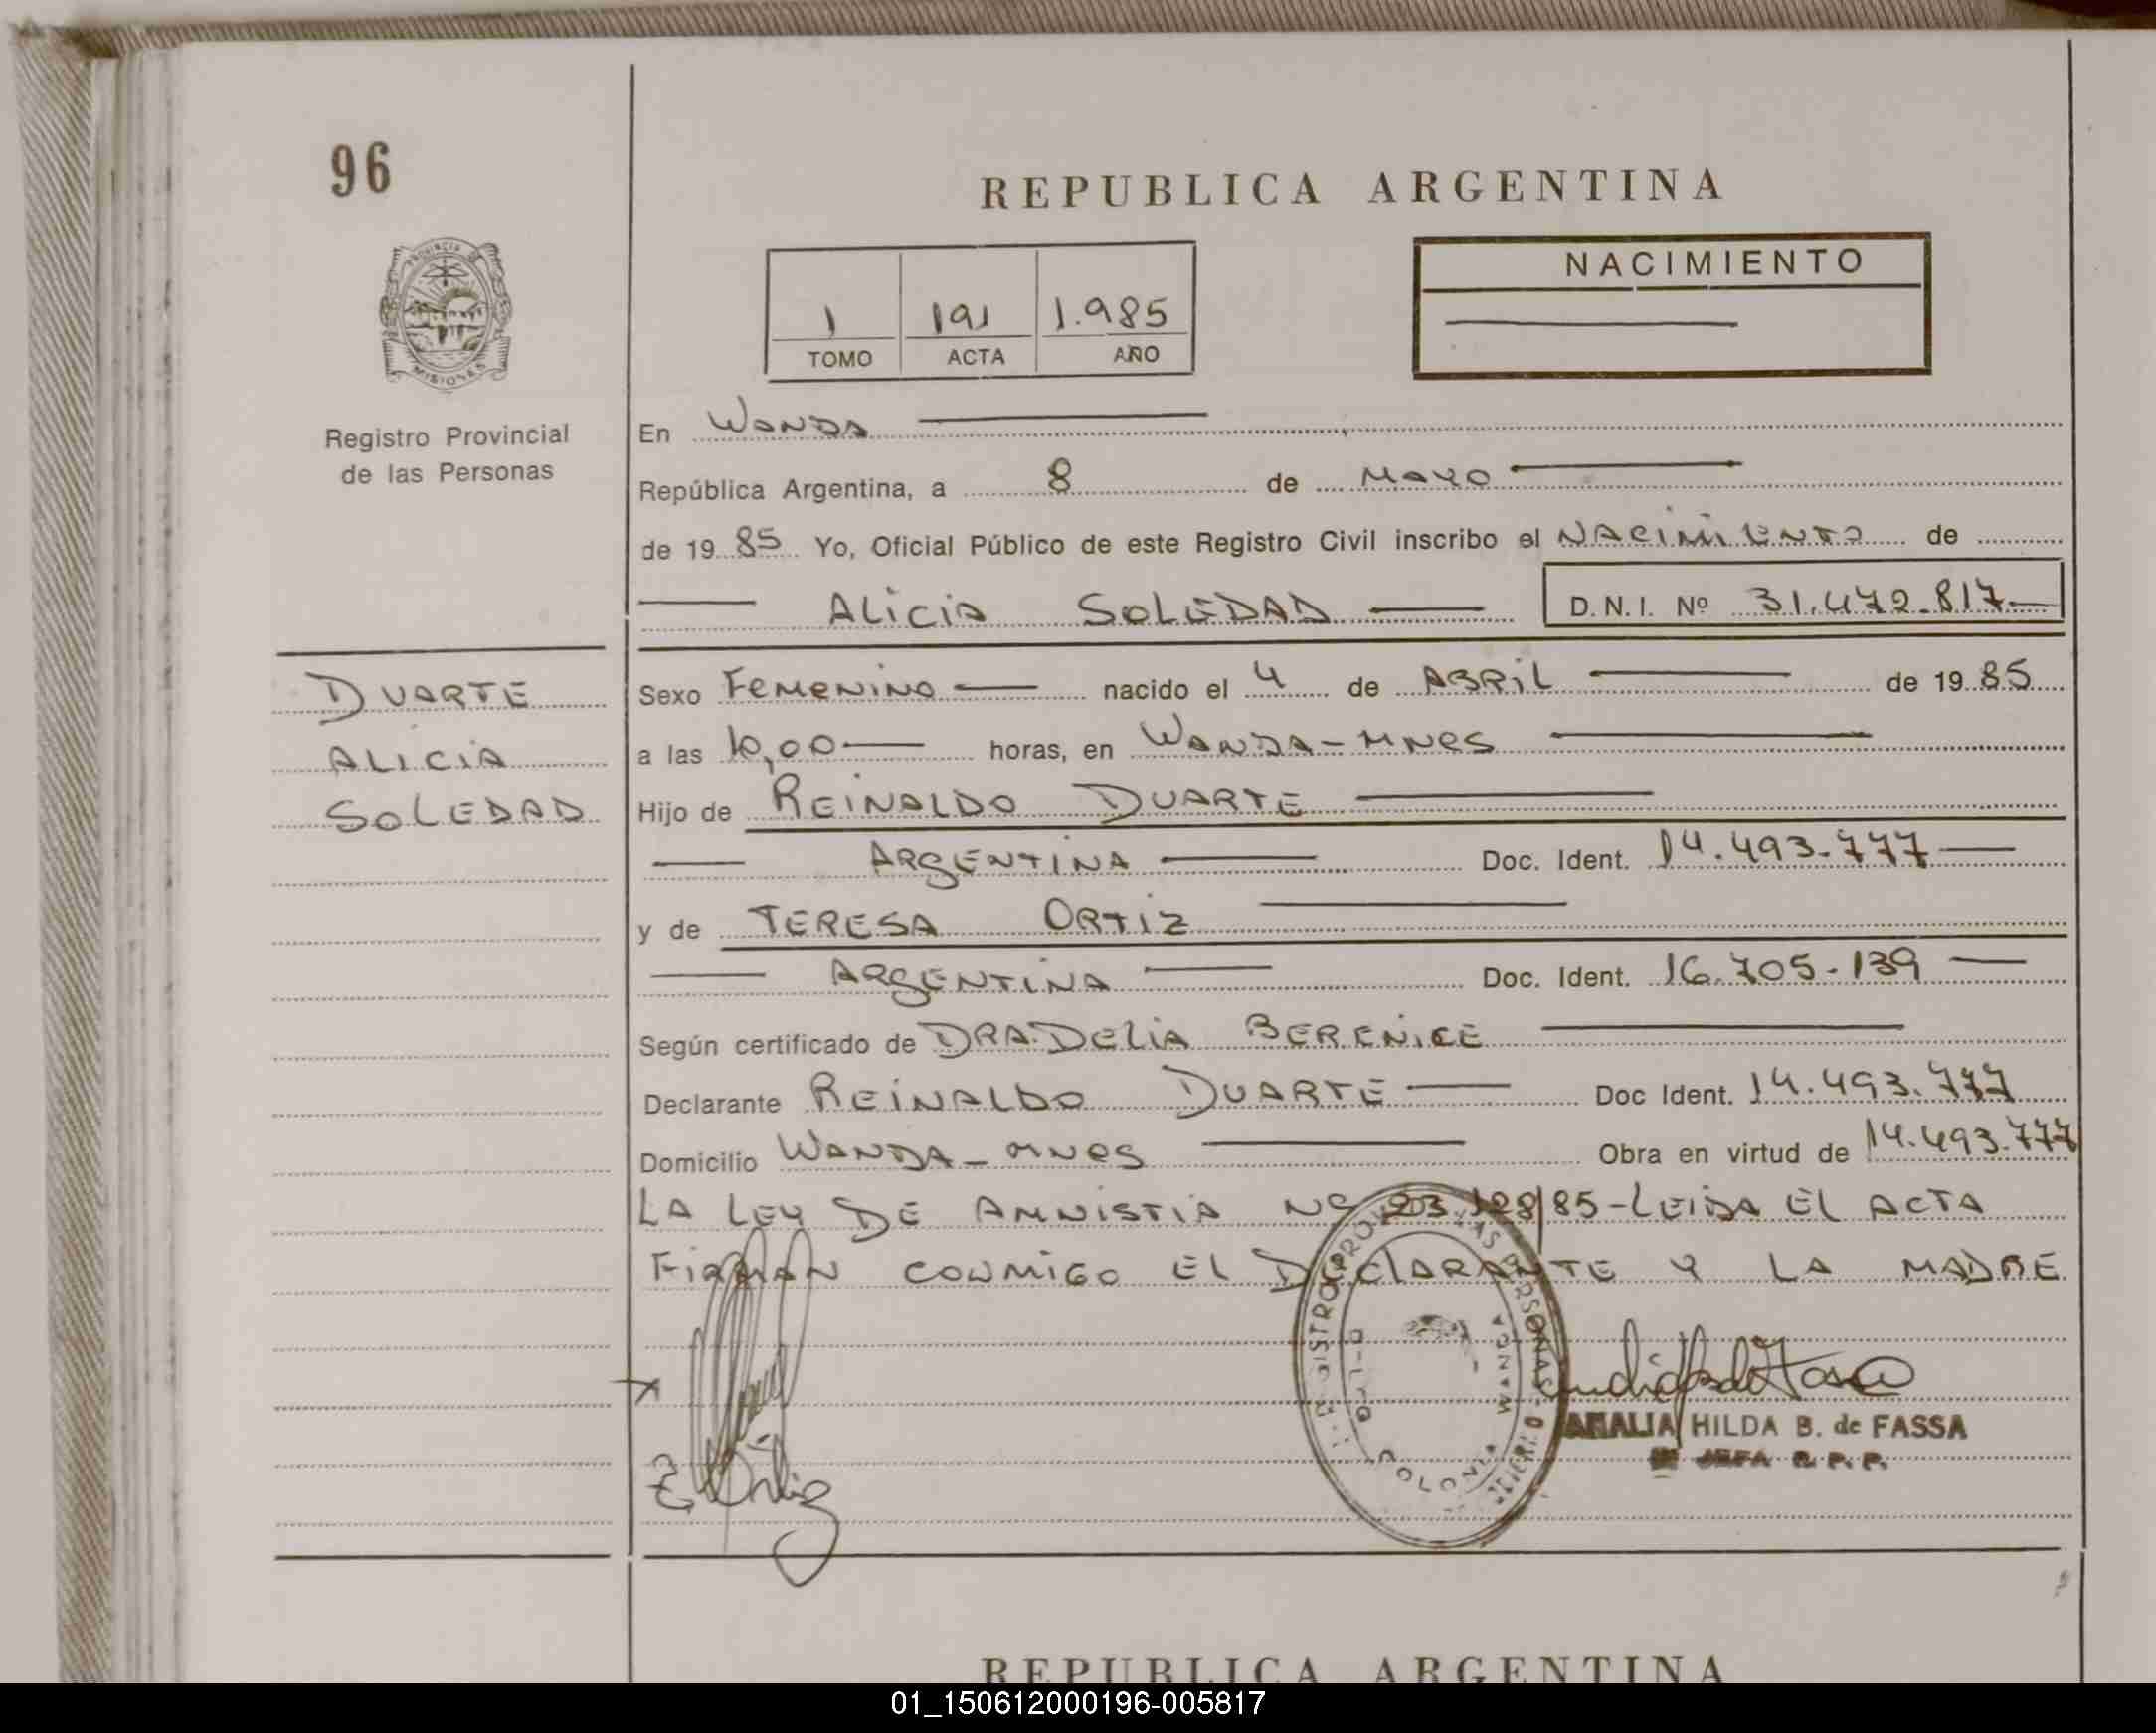 96
REPUBLICA ARGENTINA
PROVINCIA DE
MISIONES
Registro Provincial
de las Personas
1 191 1.985
TOMO ACTA AÑO
NACIMIENTO
En WANDA
República Argentina, a 8 de MAYO
de 19 85 Yo, Oficial Público de este Registro Civil inscribo el NACIMIENTO de
ALICIA SOLEDAD D.N.I. Nº 31.472.817
DUARTE
ALICIA
SOLEDAD
Sexo FEMENINO nacido el 4 de ABRIL de 19 85
a las 10,00 horas, en WANDA - MNES
Hijo de REINALDO DUARTE
ARGENTINA Doc. Ident. 14.493.777
y de TERESA ORTIZ
ARGENTINA Doc. Ident. 16.705.139
Según certificado de DRA. DELIA BERENICE
Declarante REINALDO DUARTE Doc Ident. 14.493.777
Domicilio WANDA - MNES Obra en virtud de 14.493.777
LA LEY DE AMNISTIA Nº 23.128/85 - LEIDA EL ACTA
FIRMAN CONMIGO EL DECLARANTE Y LA MADRE
COLONIA WANDA
AMALIA HILDA B. de FASSA
JEFA R. P. P.
REPUBLICA ARGENTINA
01_150612000196-005817